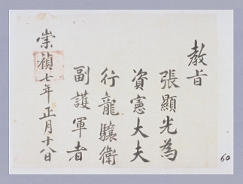 教旨
張顯光為
資憲大夫
行龍驤衛
副護軍者
崇禎七年正月十八日
60